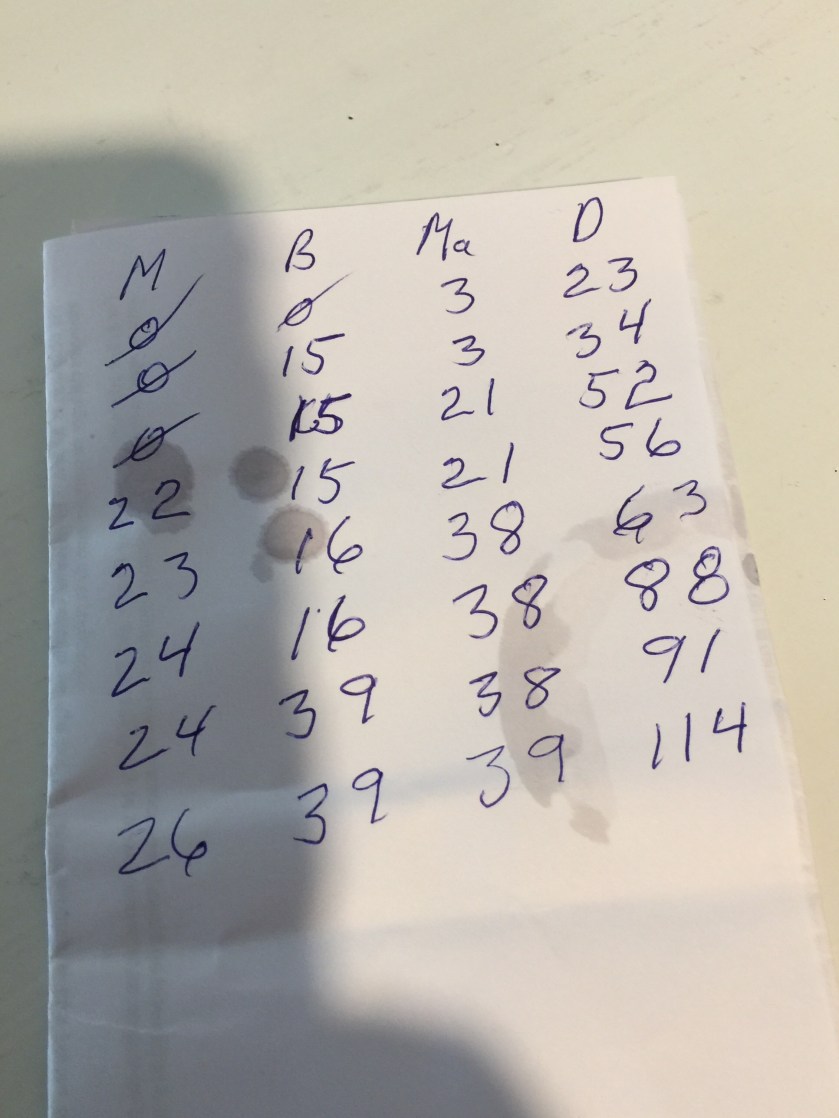 M B Ma D
0 0 3 23
0 15 3 34
0 15 21 52
22 15 21 56
23 16 38 63
24 16 38 88
24 39 38 91
26 39 39 114